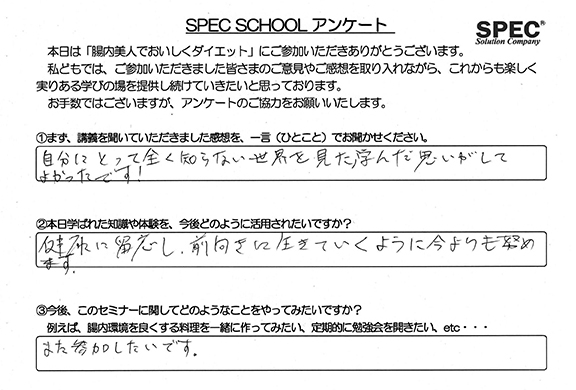 SPEC SCHOOL アンケート
SPEC®
Solution Company
本日は「腸内美人でおいしくダイエット」にご参加いただきありがとうございます。
私どもでは、ご参加いただきました皆さまのご意見やご感想を取り入れながら、これからも楽しく
実りある学びの場を提供し続けていきたいと思っております。
お手数ではございますが、アンケートのご協力をお願いいたします。
①まず、講義を聞いていただきました感想を、一言（ひとこと）でお聞かせください。
自分にとって全く知らない世界を見た学んだ思いがして
よかったです！
②本日学ばれた知識や体験を、今後どのように活用されたいですか？
健康に留意し、前向きに生きていくように今よりも努め
ます。
③今後、このセミナーに関してどのようなことをやってみたいですか？
例えば、腸内環境を良くする料理を一緒に作ってみたい、定期的に勉強会を開きたい、etc・・・
また参加したいです。